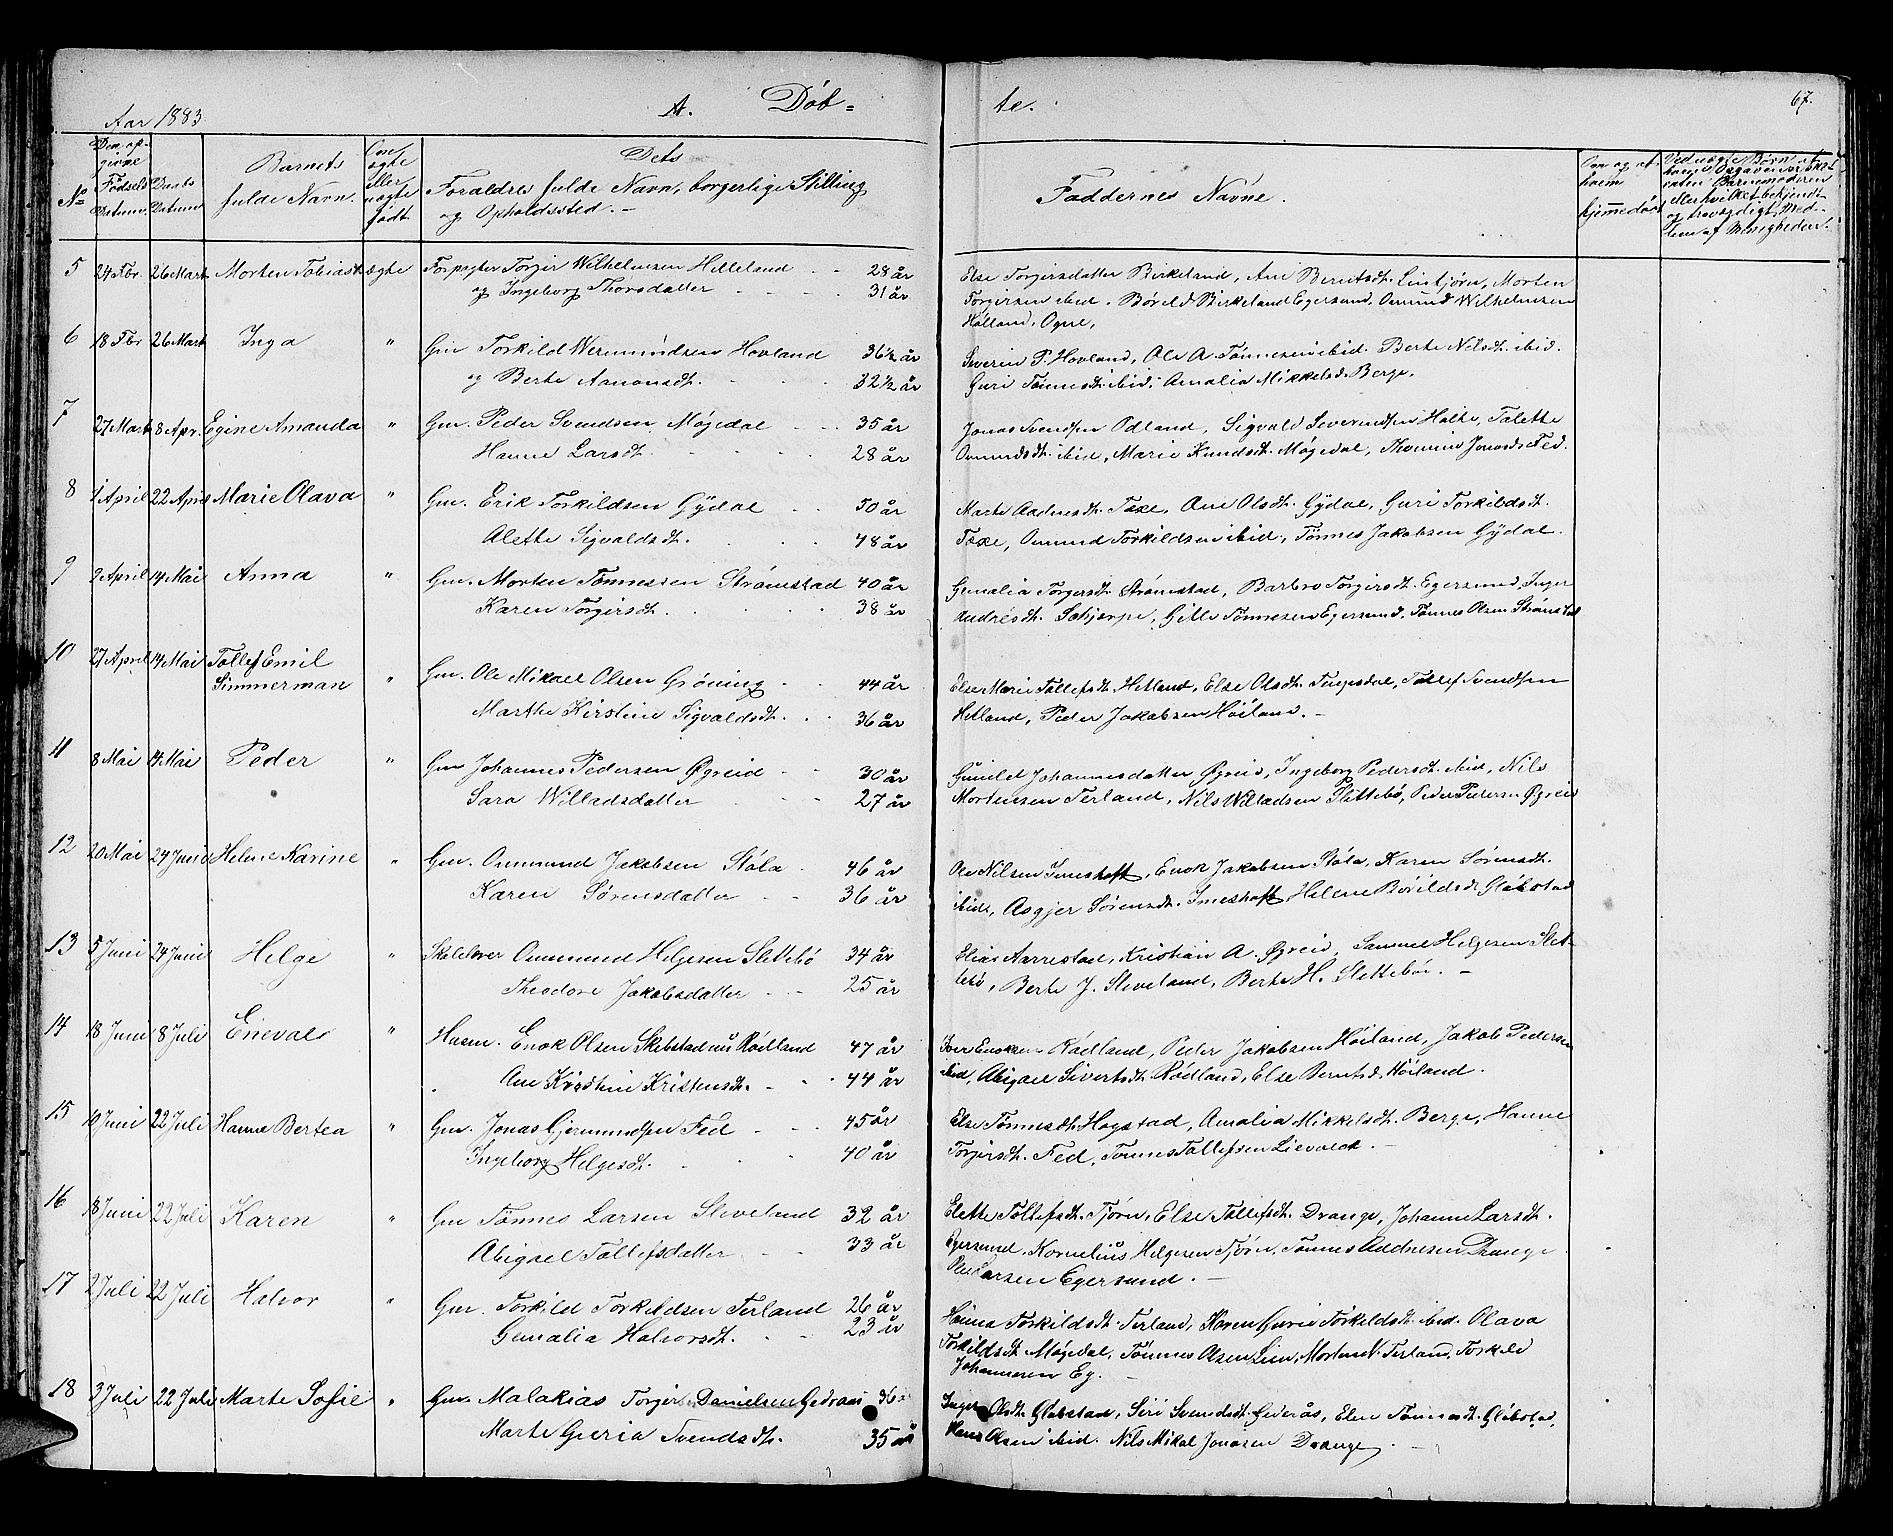 Aar 1883
A. Døb=
te.
67.
No
Den op-
givne
Fødsels
Datum.
Daabs
Datum
Barnets
fulde Navn.
Om
ægte
eller
uægte
født
Dets
Forældres fulde Navn, borgerlige Stilling
og Opholdssted. -
Faddernes Navne.
Om og af
hvem
hjemmedøbt
5 24 Fbr. 26 Mart Morten Tobias ægte Forpagter Torger Wilhelmsen Helleland - - 28 år
og Ingeborg Thorsdatter - - - - 31 år
Else Torgersdatter Birkeland, Ane Berntsdt. Lintjørn, Morten
Torgersen ibid. Børild Birkeland Egersund, Omund Wilhelmsen
Hølland, Ogne,
6 18 Fbr 26 Mart Inga " Gm Torkild Weremundsen Hovland 36 1/2 år
og Berte Aanonsdt. - - - - 32 1/2 år
Severin P. Hovland, Ole A. Tønnesen ibid. Berte Nilsdt. ibid.
Guri Tønnesdt. ibid, Amalia Mikkelsd. Berge.
7 27 Mart 8 Apr. Egine Amanda " Gm. Peder Svendsen Møgedal - - 35 år
Hanne Larsdt. - - - - 28 år
Jonas Svendsen Odland, Sigvald Severindsen Holte, Talette
Omundsdt. ibid, Marie Knudsdt. Møgedal, Thomine Jonasd. Fed.
8 1 April 22 April Marie Olava " Gm. Erik Torkildsen Gydal - - 50 år
Alette Sigvaldsdt. - - - 48 år
Marte Aadnesdt. Faxe, Ane Olsdt. Gydal, Guri Torkildsdt.
Faxe, Omund Torkildsen ibid, Tønnes Jakobsen Gydal.
9 9 April 14 Mai Anna " Gm. Morten Tønnessen Strømstad 40 år
Karen Torgersdt. - - - - 38 år
Gemalia Torgersdt. Strømstad, Barbro Torgersdt. Egersund, Inger
Andresdt. Schjerpe, Gitle Tønnesen Egersund, Tønnes Olsen Strømstad
10 27 April 14 Mai Tollef Emil
Simmerman " Gm. Ole Mikael Olsen Grøning - - 44 år
Marthe Kirstine Sigvaldsdt. - - 36 år
Else Marie Tollefsdt. Hetland, Else Olsdt. Tingsdal, Tollef Svendsen
Hetland, Peder Jakobsen Høiland. -
11 8 Mai 14 Mai Peder " Gm Johannes Pedersen Øgreid - - 30 år
Sara Willadsdatter - - 27 år
Gunilet Johannesdatter Øgreid, Ingeborg Pedersdt. ibid, Nils
Mortensen Terland, Nils Willadsen Slittebø, Peder Pedersen Øgreid
12 20 Mai 24 Juni Helene Karine " Gm. Ommund Jakobsen Støla - 46 år
Karen Sørensdatter - - 36 år
Ole Nilsen Imeshaft, Enok Jakobsen Støla, Karen Sørensdt.
ibid, Asgjer Sørensdt. Imeshaft Helene Børildsd. Gløbstad
13 5 Juni 24 Juni Helge " Skolelærer Ommund Helgesen Slettebø 34 år
Theodore Jakobsdatter - - 25 år
Elias Aarrestad, Kristian A. Øgreid, Samuel Helgesen Slet-
tebø, Berte J. Sleveland, Berte H. Slettebø. -
14 18 Juni 8 Juli Enevald " Husm. Enok Olsen Skebstad nu Rødland 47 år
Ane Kirstine Kristensdt. - - 44 år
Iver Enoksen Rødland, Peder Jakobsen Høiland, Jakob Pedersen
ibid, Abigael Sivertsdt. Rødland, Else Berntsd. Høiland.
15 10 Juni 22 Juli Hanne Bertea " Gm. Jonas Gjermundsen Fed - - 45 år
Ingeborg Helgesdt. - - - 40 år
Else Tønnesdt. Hogstad, Amalia Mikkelsdt. Berge, Hanne
Torgersdt. Fed, Tønnes Tollefsen Lievold. -
16 18 Juni 22 Juli Karen " Gm Tønnes Larsen Sleveland 32 år
Abigael Tollefsdatter - - 33 år
Elette Tollefsdt. Tjørn, Else Tollefsdt. Drange, Johanne Larsdt.
Egersund, Kornelius Helgesen Tjørn, Tønnes Aadnesen Drange
Ole Larsen Egersund. -
17 2 Juli 22 Juli Halvor " Gm. Torkild Torkildsen Terland 26 år
Gemalia Halvorsdt. - - 23 år
Hanna Torkildsdt. Terland, Karen Gurie Torkildsdt. ibid. Olava
Torkildsdt. Møgedal, Tønnes Olsen Lien, Morten N. Terland, Torkild
Johannesen Eg. -
18 3 Juli 22 Juli Marte Sofie " Gm. Malakias Torger Danielsen Gedraas 36
Marte Guria Svendsdt. 35 år
Inger Olsdt. Gløbstad, Siri Svendsdt. Gederås, Elen Tønnesdt. Gløbstad,
Hans Olsen ibid. Nils Mikal Jonasen Drange, -